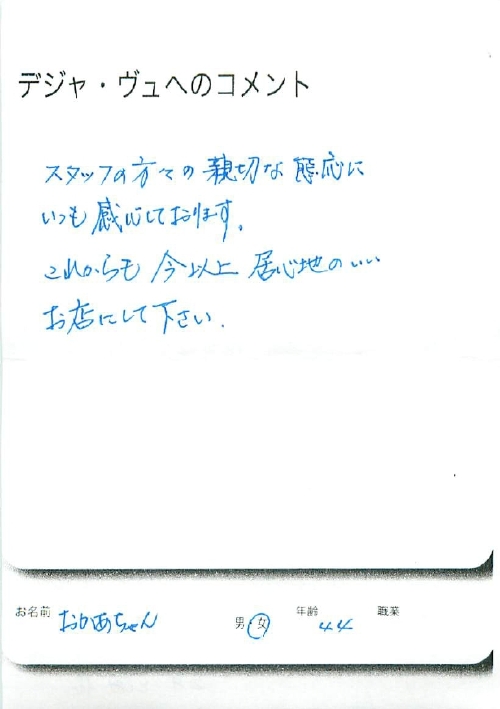 デジャ・ヴュへのコメント
スタッフの方々の親切な態応に
いつも感心しております。
これからも今以上居心地のいい
お店にして下さい.
お名前 おかあちゃん 男・女 年齢 44 職業